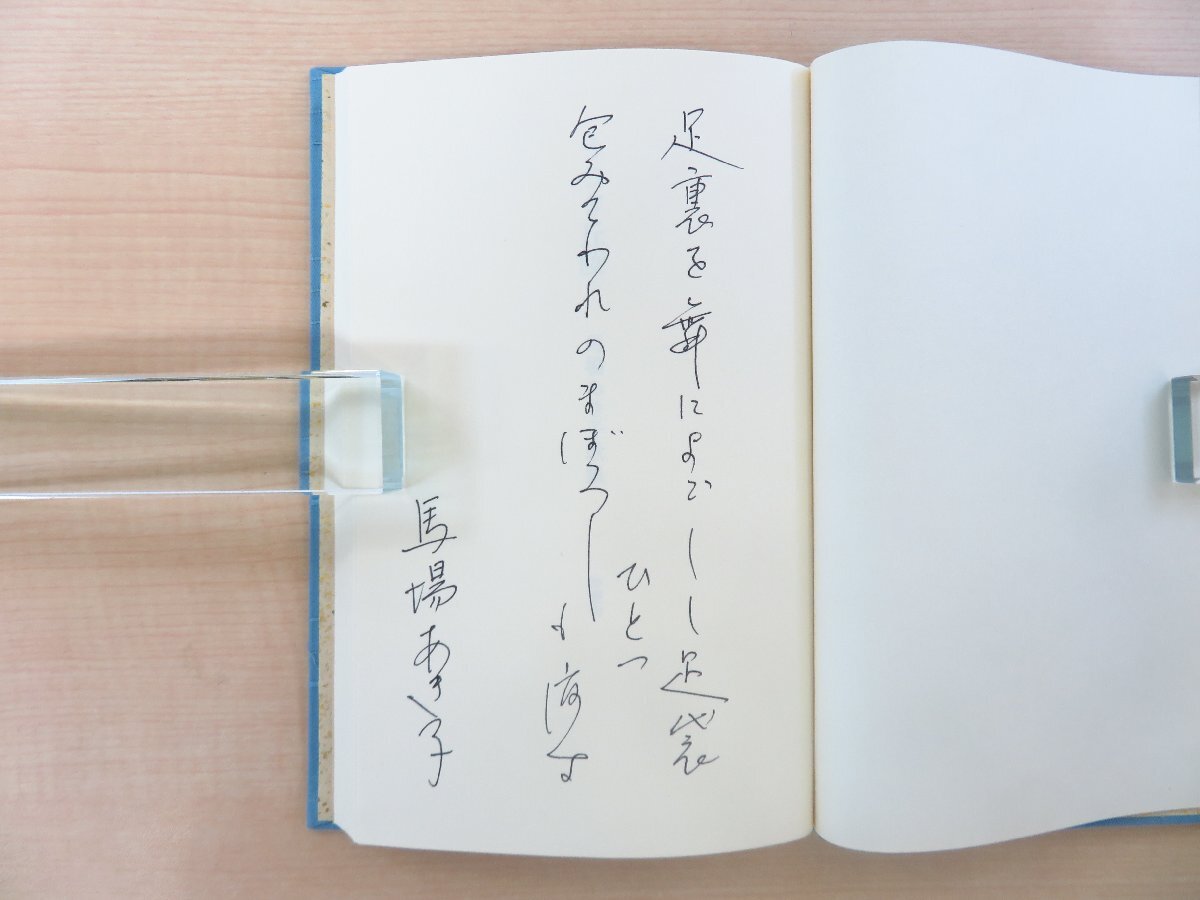 足裏を舞によごしし足袋
ひとつ
包みてわれのまぼろしも消す
馬場あき子